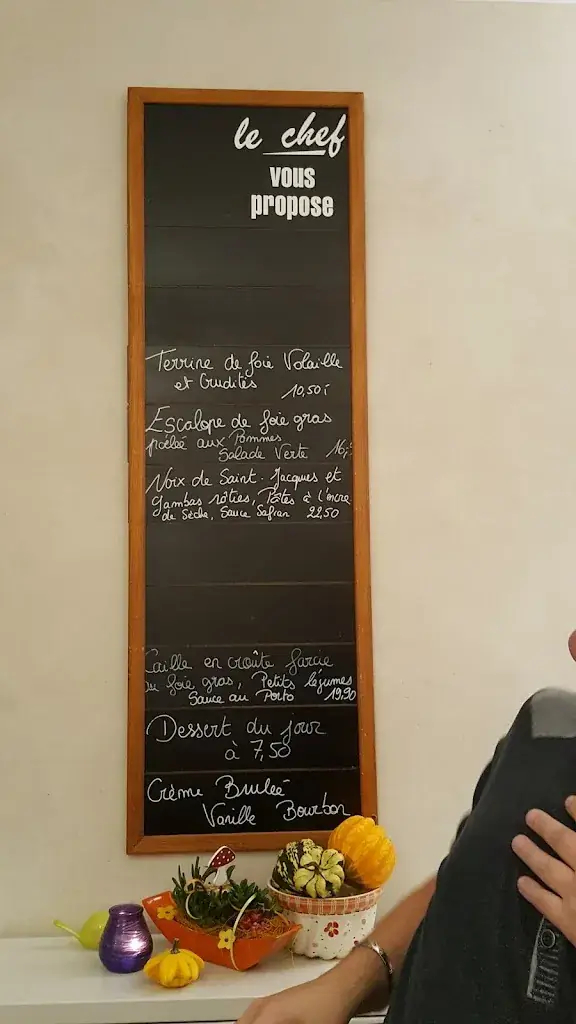 le chef
vous
propose
Terrine de foie Volaille
et Crudités
10,50
Escalope de foie gras
poêlée aux Pommes
Salade Verte 16,-
Noix de Saint-Jacques et
gambas rôties, Pâtes à l'encre
de Sèche, Sauce Safran 22,50
Caille en croûte farcie
au foie gras, Petits légumes
Sauce au Porto 19,90
Dessert du jour
à 7,50
Crème Brulée
Vanille Bourbon